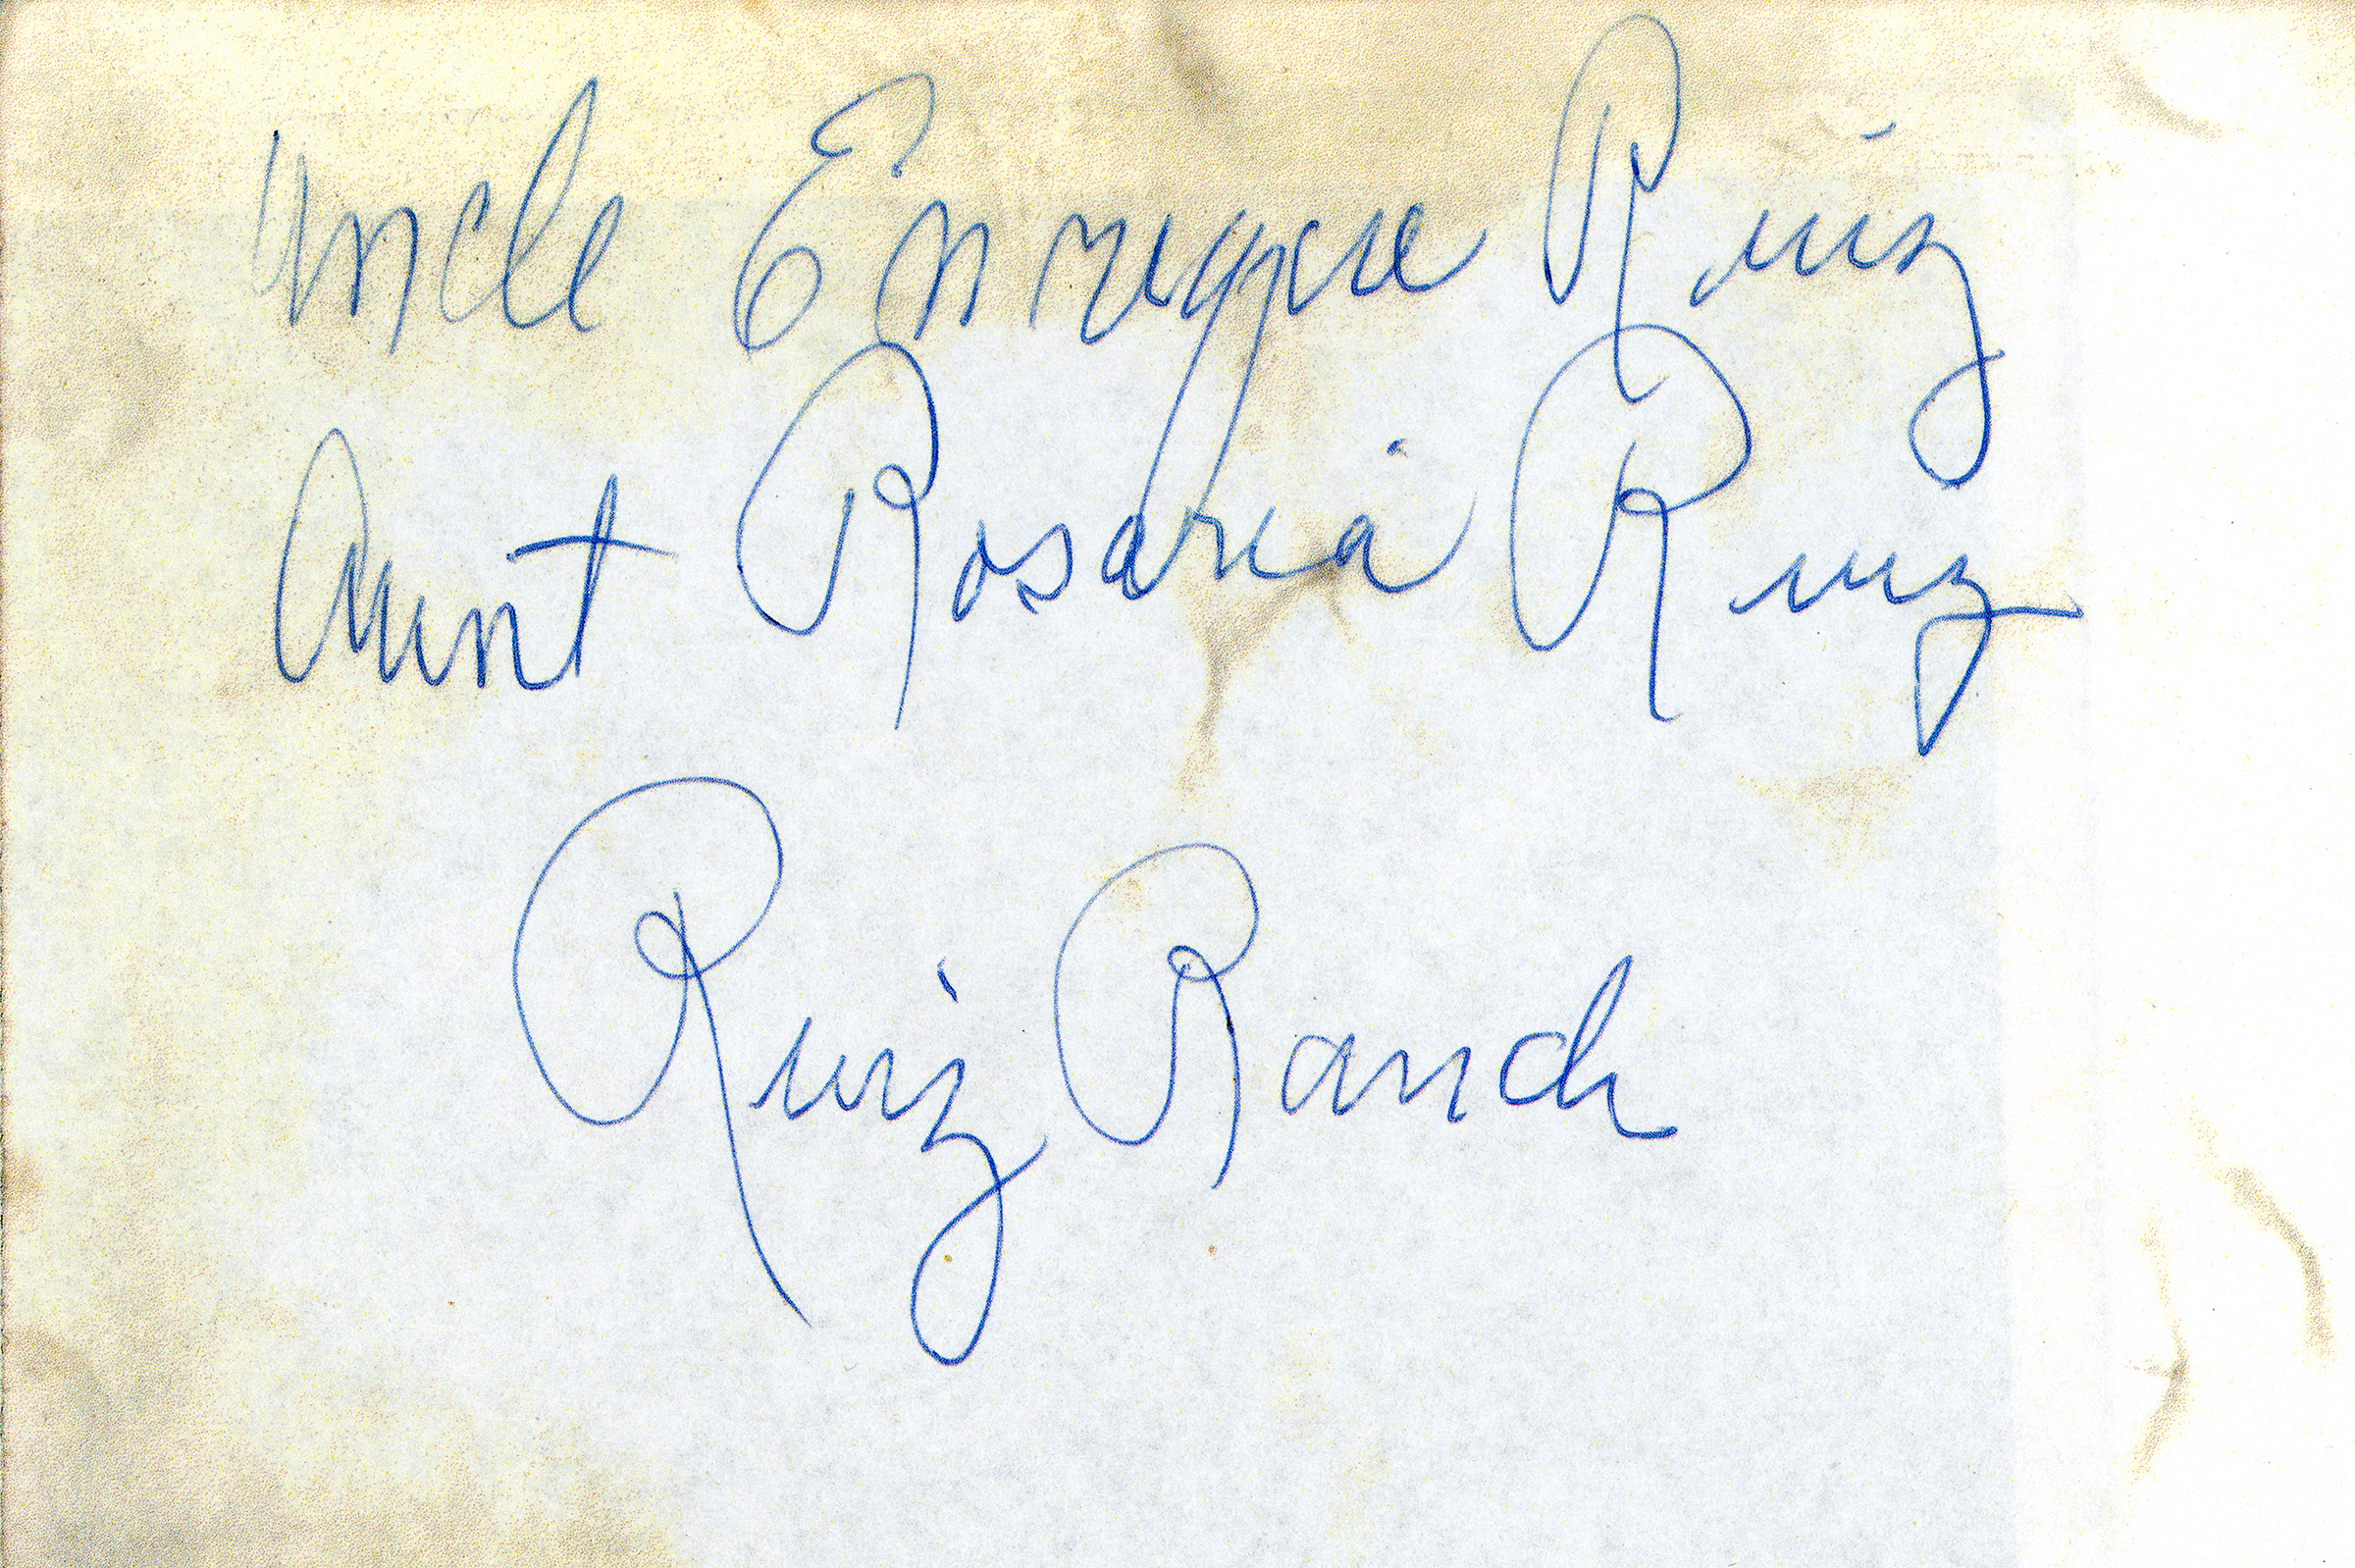 Uncle Enrique Ruiz
Aunt Rosaria Ruiz
Ruiz Ranch